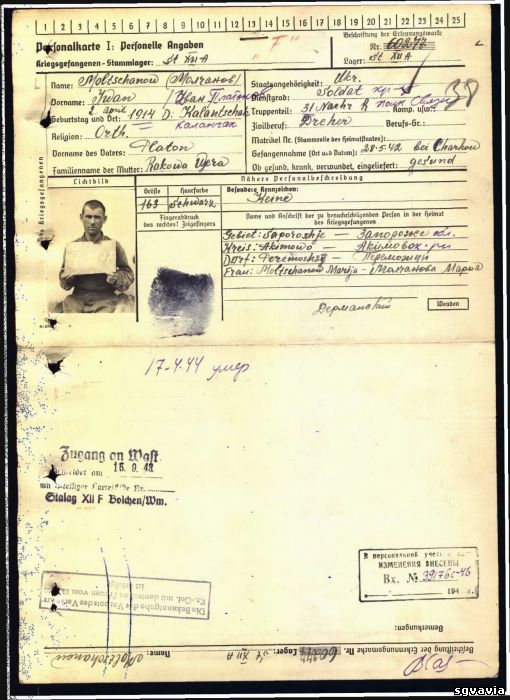 1 2 3 4 5 6 7 8 9 10 11 12 13 14 15 16 17 18 19 20 21 22 23 24 25
Personalkarte I: Personelle Angaben
Beschriftung der Erkennungsmarke
Kriegsgefangenen-Stammlager: St XII A
"F"
Nr. 60277
Lager: St XII A
Des Kriegsgefangenen
Name: Moltschanow /Молчанов/
Vorname: Iwan /Иван Платонов
Geburtstag und Ort: 2 April 1914 D. Kalantschak
Каланчак
Religion: Orth.
Vorname des Vaters: Platon
Familienname der Mutter: Rakowa Wera
Staatsangehörigkeit: Ukr.
Dienstgrad: Soldat кр-ц
38
Truppenteil: 31 Nachr R Komp. usw.:
Zivilberuf: Dreher Berufs-Gr.:
Matrikel Nr. (Stammrolle des Heimatstaates):
Gefangennahme (Ort und Datum): 28.5.42 bei Charkow
Ob gesund, krank, verwundet, eingeliefert: gesund
Lichtbild
Nähere Personalbeschreibung
Größe
Haarfarbe
Besondere Kennzeichen:
163
Schwarz
Keine
Fingerabdruck
des rechten! Zeigefingers
Name und Anschrift der zu benachrichtigenden Person in der Heimat
des Kriegsgefangenen
Gebiet: Saporoshje — Запорожс обл.
Kreis: Akimowo — Акимовск. р-н
Dorf: Peremoshzy — Переможцы
Frau: Moltschanow Marija — Молчанова Мария
Wenden
17-4.44 умер
Zugang an Wast.
gemeldet am 15.9.42
Stalag XII F Bolchen/Wm.
В персональной учет
ИЗМЕНЕНИЯ ВНЕСЕНЫ
Вх. № 39760-46
194 г.
Die Bekanntgabe des Verbots des Verkehrs
Kr.-Gef. mit deutschen Frauen vom 10.
ist erfolgt
Bemerkungen:
Beschriftung der Erkennungsmarke Nr. 60277 Lager: St XII A
Name: Moltschanow
sgvavia